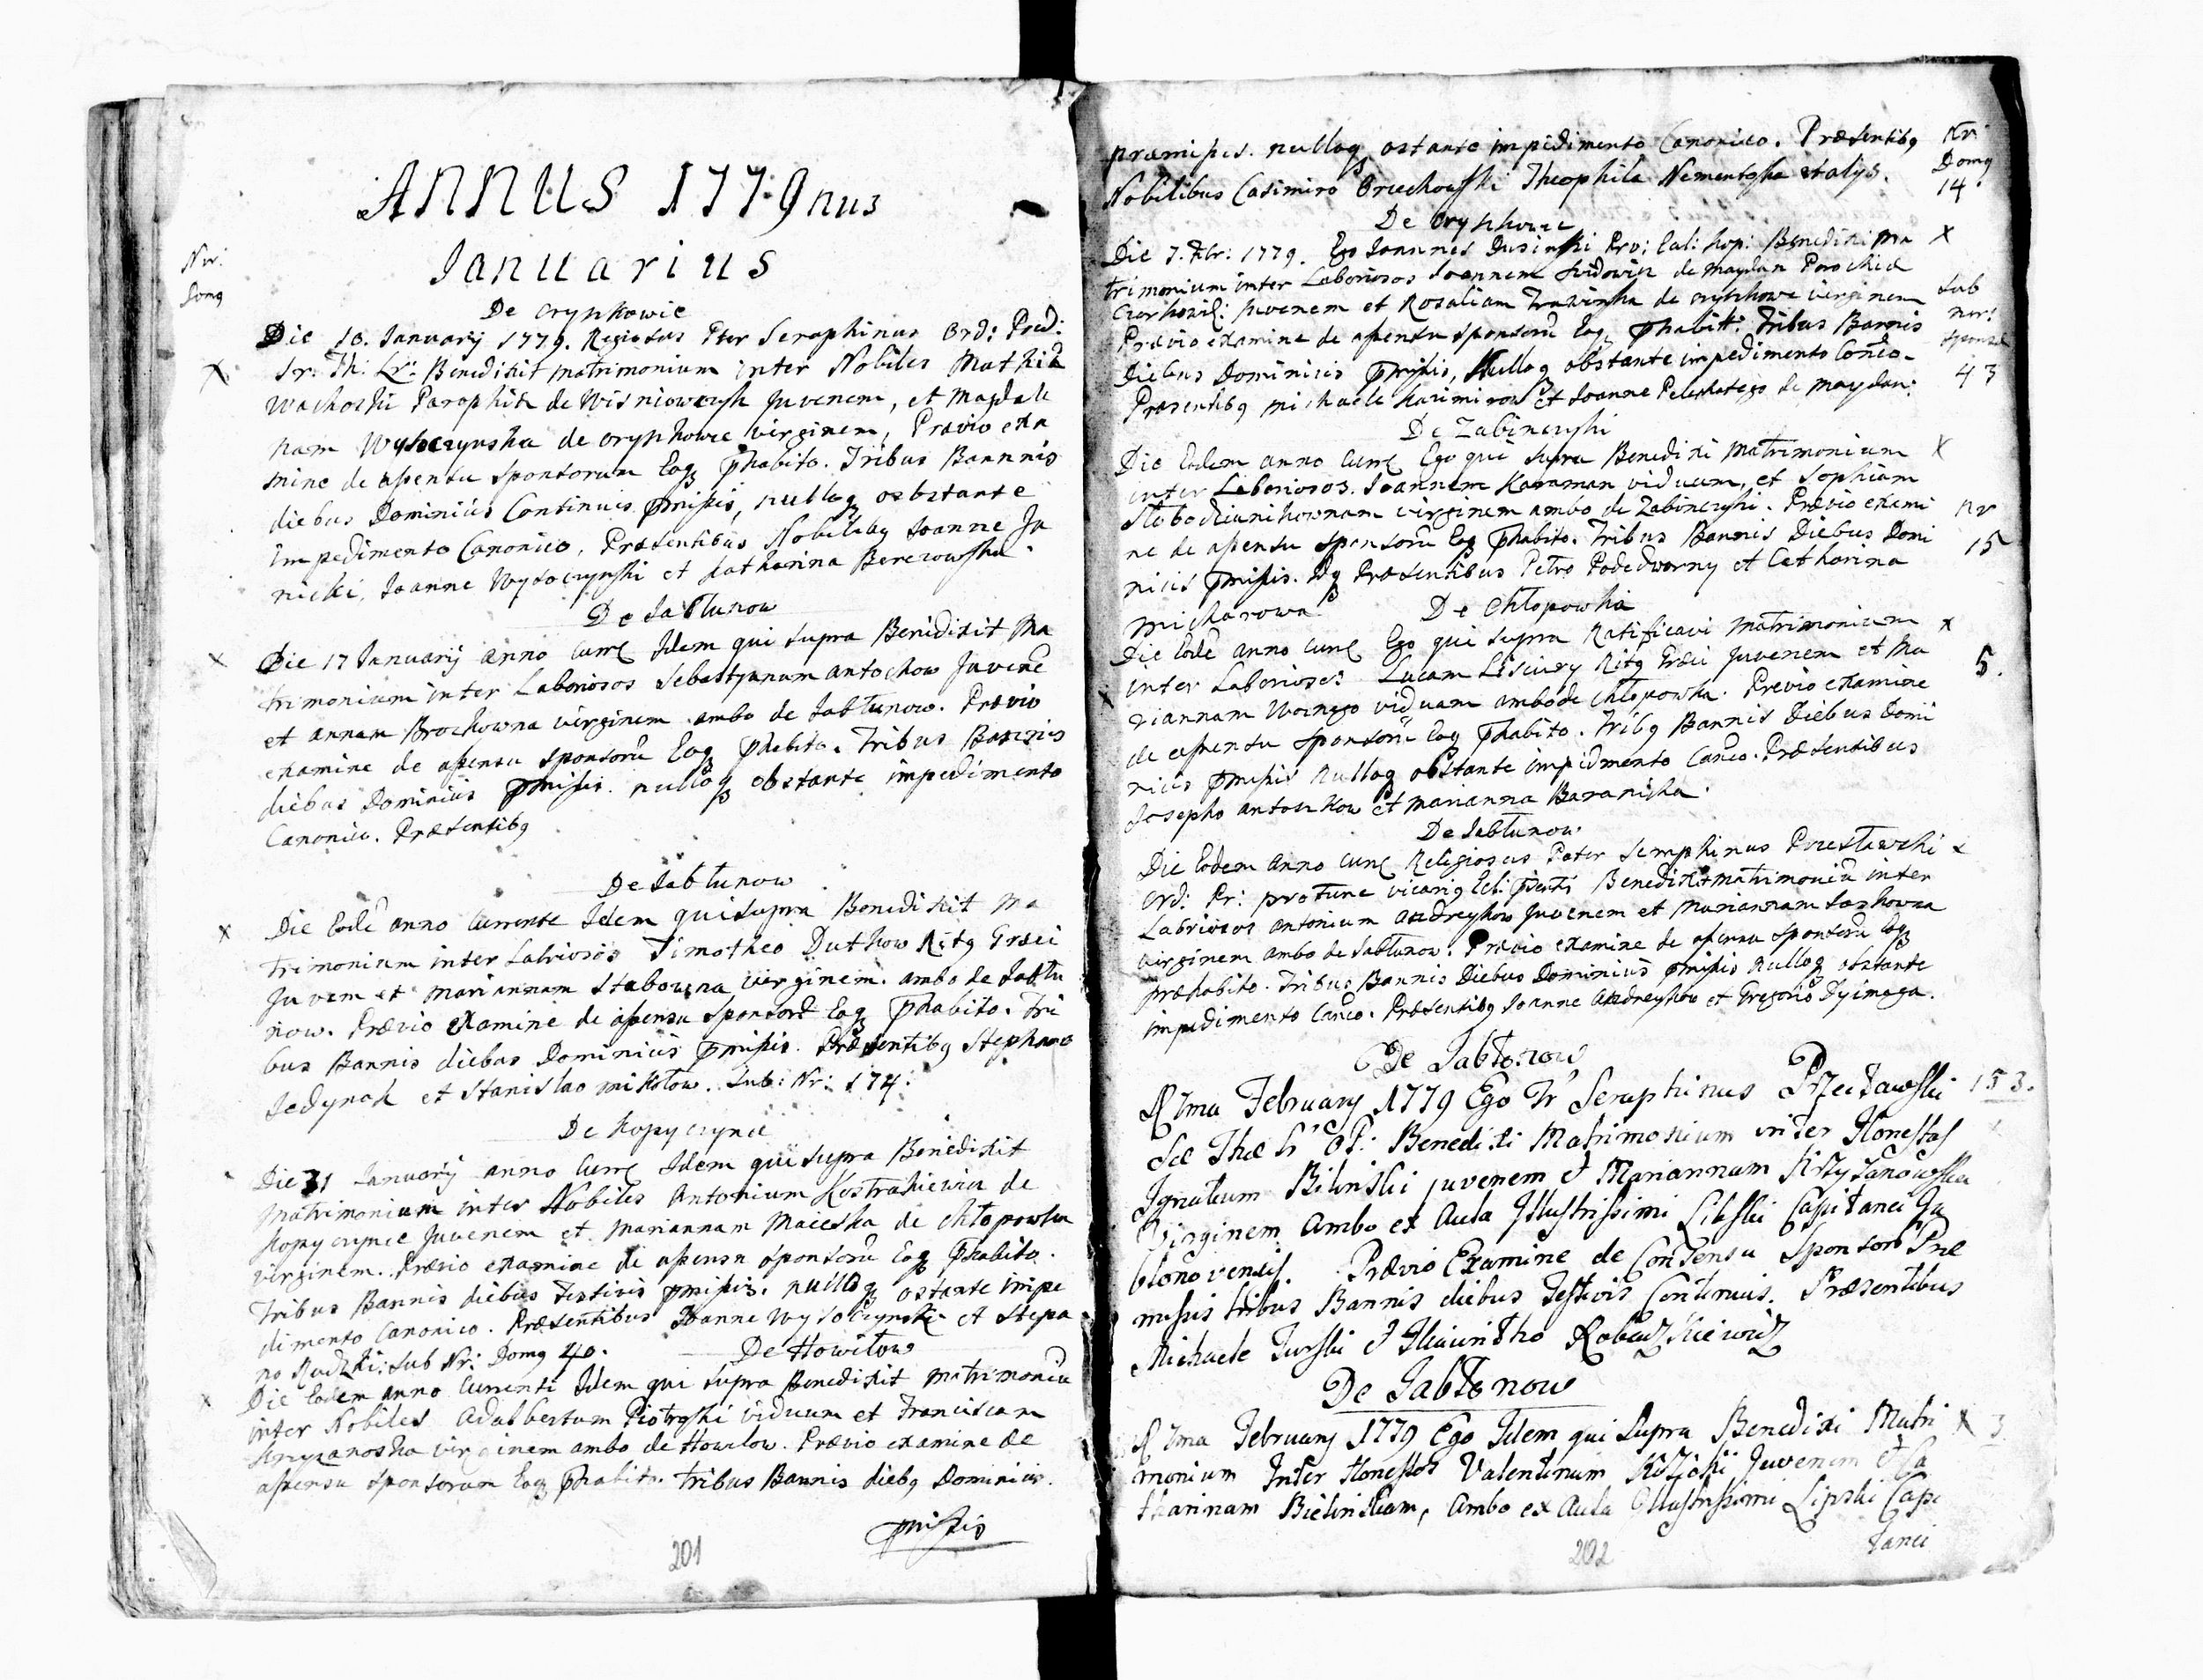 ANNUS 1779nus
Januarius
Nr:
Domq
De Oryszkowie
Die 10. Januarij 1779. Regiosus Pter Seraphinus Ord: Præd:
Sr: Th: Lr: Benedixit matrimonium inter Nobiles Mathiā
Wachoski Parophiæ de Wisniowczyk Juvenem, et Magdale
nam Wysoczynska de oryszkowce virginem, Prævio exa
mine de assensu sponsorum Eoq phabito. Tribus Bannnis
diebus Dominicis Continuis pmissis, nulloq osbstante
impedimento Canonico, Præsentibus Nobilibq Joanne Ja
nicki, Joanne Wysoczynski et Katharina Berezowska.
De Jabłunow
Die 17 Januarij anno curre Idem qui supra Benidixit Ma
trimonium inter Laboriosos Sebastyanum antochow Juvenē
et annam Brochowna virginem ambo de Jabłunow. Prævio
examine de assensu sponsorū Eoq phabito. Tribus Bannis
diebus Dominicis pmissis. nulloq obstante impedimento
Canonico. Præsentibq
De Jabłunow
Die Eodē anno Currente Idem qui supra Benedixit Ma
trimonium inter Labriosos Timotheo Dutkow Ritq Græci
Juvem et Mariannam Stabowna virginem. ambo de Jabłu
now. Prævio examine de assensu sponsorū Eoq phabito. Tri
bus Bannis diebus Dominicis pmissis. Præsentibq Stephano
Jedynak et Stanislao mikołow. Sub: Nr: 174:
De Kopyczynce
Die 31 Januarij anno Curre Idem qui supra Benedixit
matrimonium inter Nobiles Antonium Kostrakiewicz de
Kopyczynce Juvenem et Mariannam Maieska de chłopowka
virginem. Prævio examine de assensu sponsorū Eoq phabito.
Tribus Bannis diebus Festivis pmissis. nulloq ostante impe
dimento Canonico. Præsentibus Joanne Wysoczynski et Stepa
no Rudzki: Sub Nr: Domq 40.
De Howiłow
Die Eodem anno Currenti Idem qui supra Benedixit matrimoniū
inter Nobiles Adalbertum Piotroski viduum et Franciscam
Krzyzanoska virginem ambo de Howilow. Prævio examine de
assensu sponsorum Eoq phabito. Tribus Bannis diebq Dominicis.
pmissis
201
præmissis. nulloq ostante impedimento Canonico. Præsentibq
Nobilibus Casimiro Orzechowski Theophila Nementoska et alijs.
Nr:
Domq
14.
De Oryszkowce
Die 7. Fbr: 1779. Ego Joannes Dusinski Pro: Ecl: Kop: Benedixi Ma
trimonium inter Laboriosos Joannem Swidowicz de Maydan Parochiæ
juvenem et Rosaliam de oryszkowce virginem
Prævio examine de assensu sponsorū Eoq phabitt: Tribus Bannis
Diebus Dominicis pmissis, Nulloq obstante impedimento Canco.
Præsentibq Michaele Kazimirow et Joanne de Maydan:
Sub
nur:
Sponsæ
43
De Zabinczyki
Die Eodem anno Curre Ego qui supra Benedixi Matrimonium
inter Laboriosos. Joannem Karaman viduum, et Sophiam
Słobodzianikownam virginem ambo de Zabinczyki. Prævio exami
ne de assensu sponsorū Eoq phabito. Tribus Bannis Diebus Domi
nicis pmissis. Præsentibus Petro Podedworny et Catharina
Micharowa
Nr
15
De Chłopowka
Die Eodē anno Curre Ego qui supra Ratificavi matrimonium
inter Laborioses: Lucam Lisciury Ritq Græci Juvenem et Ma
riannam Woznego viduam ambo de Chłopowka. Prævio examine
de assensu sponsorū Eoq phabito. Tribq Bannis Diebus Domi
nicis pmissis Nulloq obstante impidmento Canco. Præsentibus
Josepho antochow et Marianna Baraniska.
5.
De Jabłunow
Die Eodem anno Curre Religiosus Pater Semphinus Przestawski
Ord: Pr: protunc vicariq Ecl: psenti Benedixit matrimoniū inter
Labriosos antonium andreykow Juvenem et Mariannam Saskowna
virginem ambo de Jabłunow. Prævio examine de assensu sponsorū Eoq
præhabito. Tribus Bannis Diebus Dominicis pmissis nulloq obstante
impedimento Canco. Præsentibq Joanne Andreykow et Gregorio Dyimaga.
De Jabłonow
7ma February 1779 Ego Fr Seraphinus Przestawski
Benedixi Matrimonium inter Honestos
Ignatium Bilinski juvenem et Mariannam Krzyzanowska
Virginem Ambo ex Aula Illustrissimi Lipski Capitanei Ja
błonovensis. Prævio Examine de Consensu Sponsorū Præ
missis tribus Bannis diebus Festivis Continuis. Præsentibus
Michaele Turski et Hiacintho
153.
De Jabłonow
7ma February 1779 Ego Idem qui Supra Benedixi Matri
monium Inter Honestos Valentinum Juvenem et Ca
tharinam Bielinskam, Ambo ex Aula Illustrissimi Lipski Capi
tanei
3
202